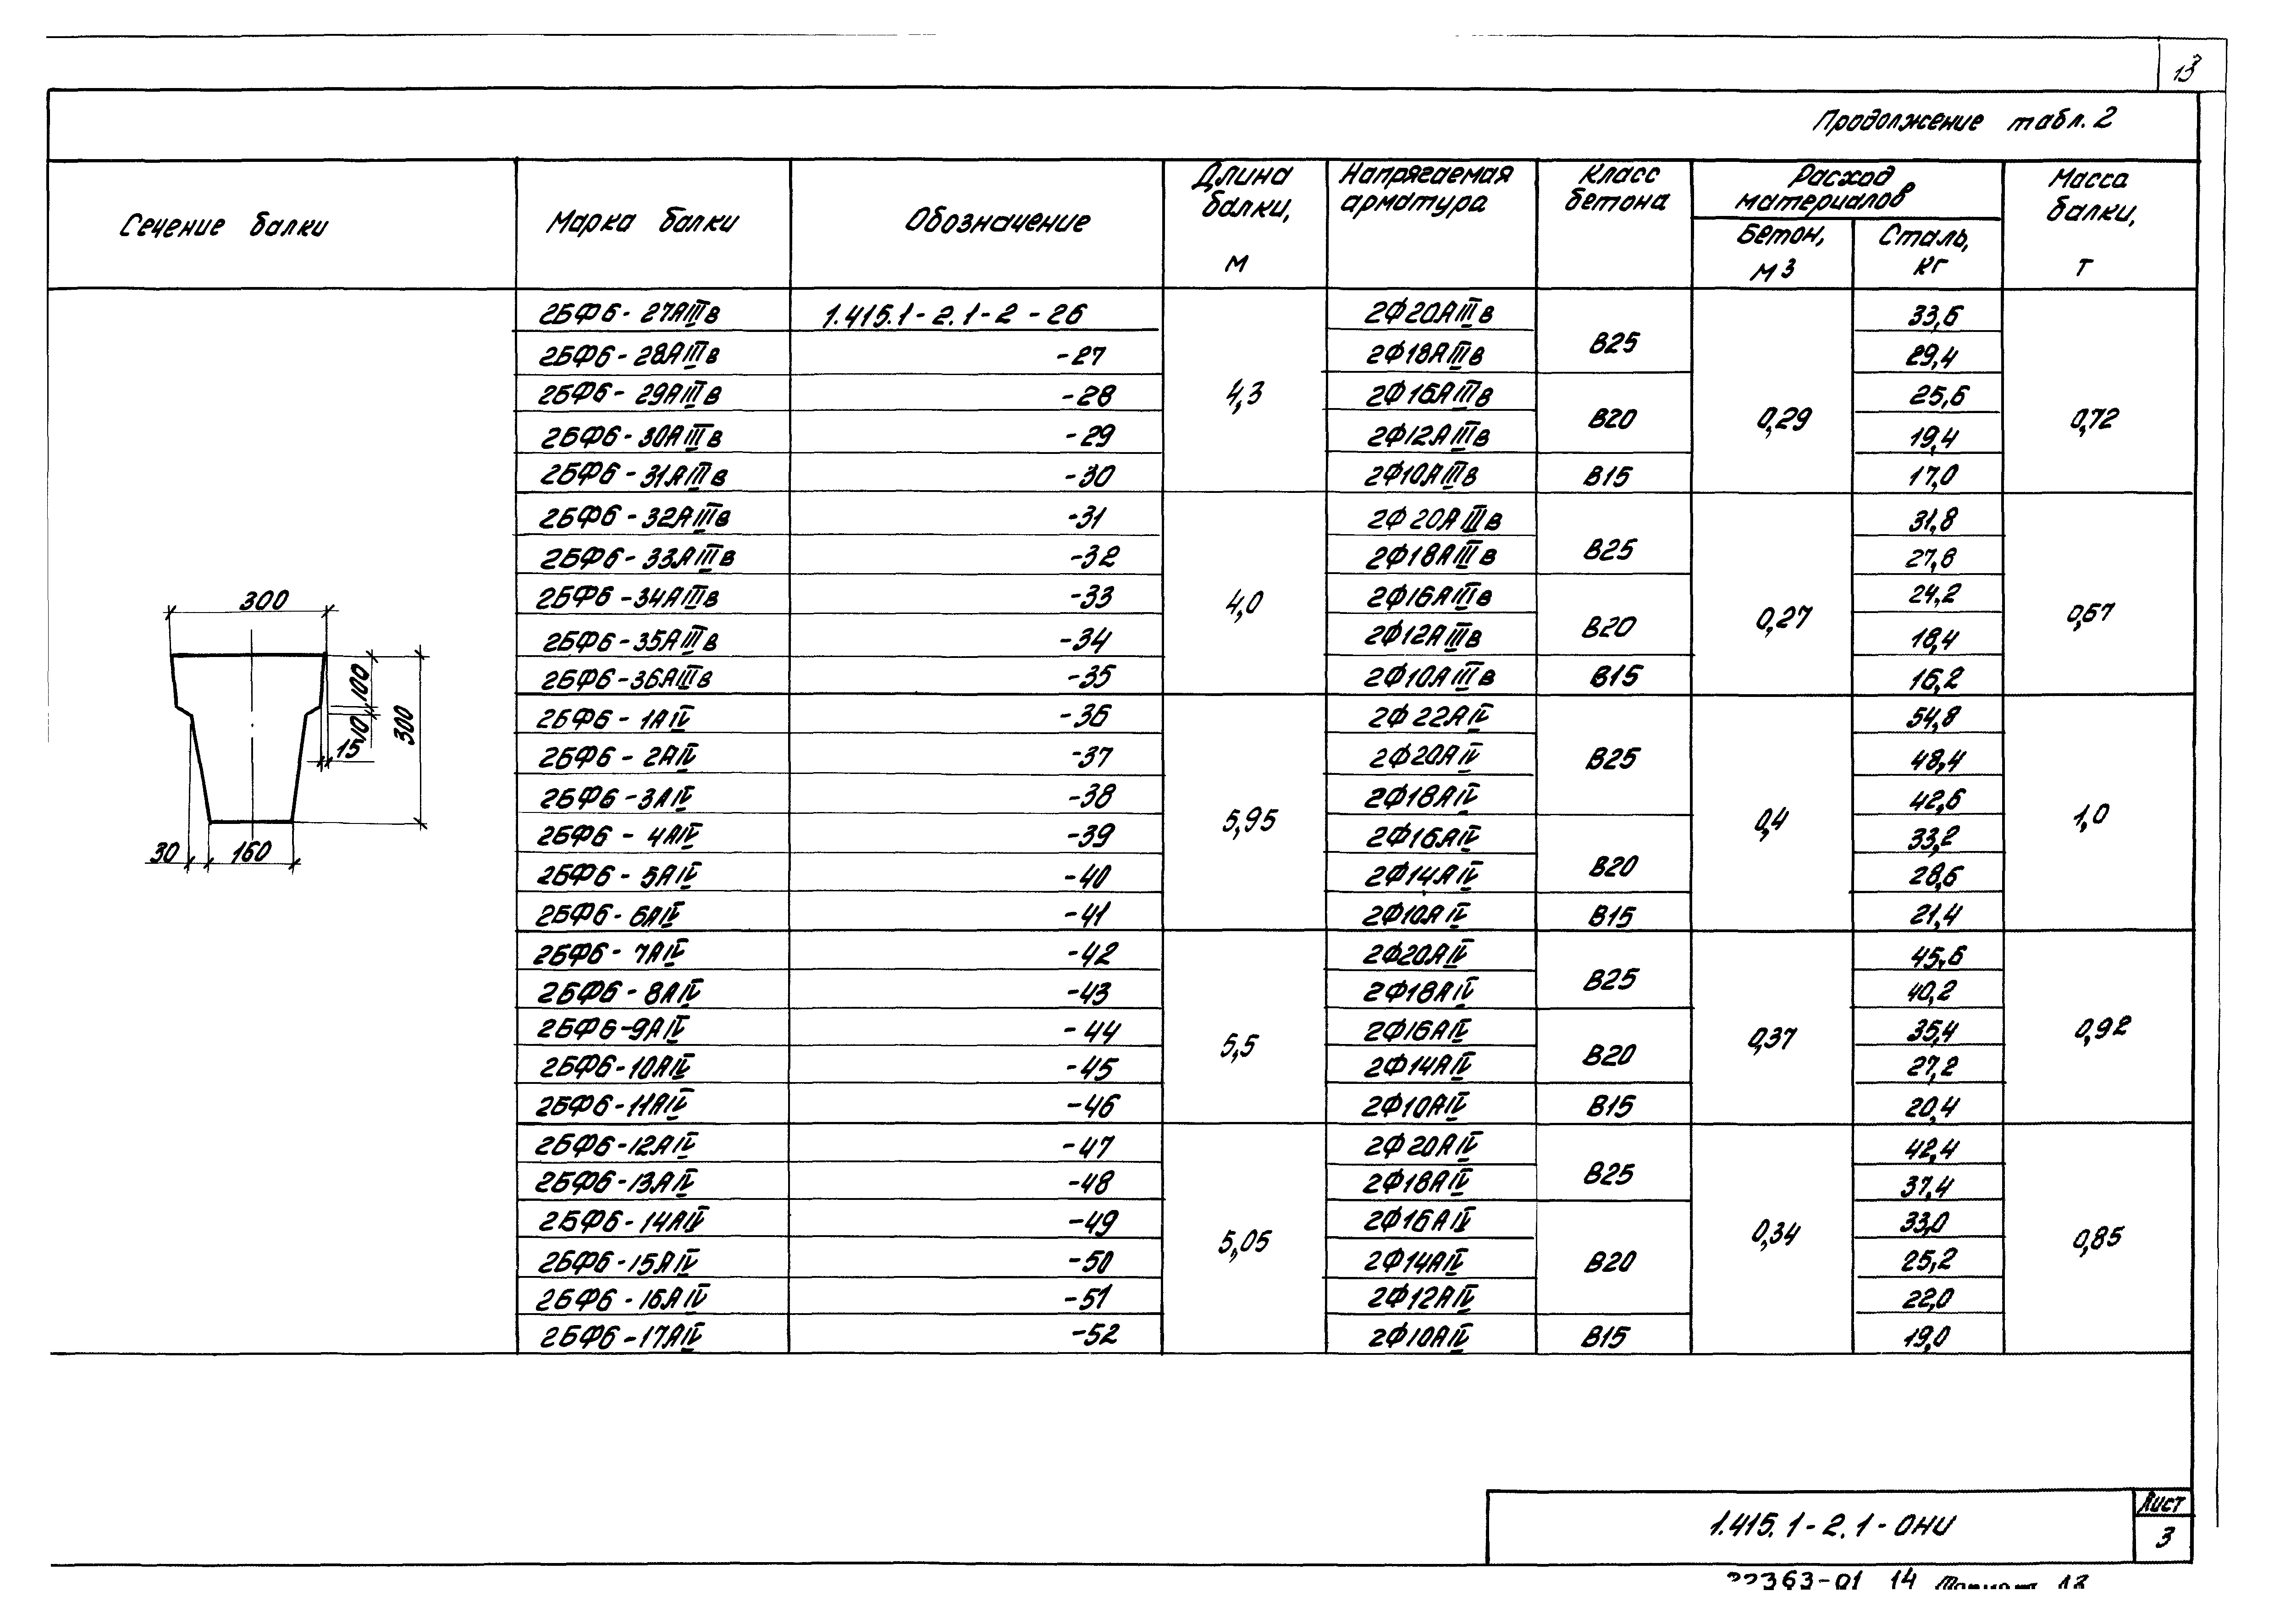 13
Продолжение табл. 2
Сечение балки
Марка балки
Обозначение
Длина балки, м
Напрягаемая арматура
Класс бетона
Расход материалов
Бетон, м3
Сталь, кг
Масса балки, т
2БФ6-27АIIIв 1.415.1-2.1-2-26 4,3 2Ф20АIIIв В25 0,29 33,6 0,72
2БФ6-28АIIIв -27 2Ф18АIIIв 29,4
2БФ6-29АIIIв -28 2Ф16АIIIв В20 25,6
2БФ6-30АIIIв -29 2Ф12АIIIв 19,4
2БФ6-31АIIIв -30 2Ф10АIIIв В15 17,0
2БФ6-32АIIIв -31 4,0 2Ф20АIIIв В25 0,27 31,8 0,67
2БФ6-33АIIIв -32 2Ф18АIIIв 27,8
2БФ6-34АIIIв -33 2Ф16АIIIв В20 24,2
2БФ6-35АIIIв -34 2Ф12АIIIв 18,4
2БФ6-36АIIIв -35 2Ф10АIIIв В15 16,2
2БФ6-1АIV -36 5,95 2Ф22АIV В25 0,4 54,8 1,0
2БФ6-2АIV -37 2Ф20АIV 48,4
2БФ6-3АIV -38 2Ф18АIV 42,6
2БФ6-4АIV -39 2Ф16АIV В20 33,2
2БФ6-5АIV -40 2Ф14АIV 28,6
2БФ6-6АIV -41 2Ф10АIV В15 21,4
2БФ6-7АIV -42 5,5 2Ф20АIV В25 0,37 45,6 0,92
2БФ6-8АIV -43 2Ф18АIV 40,2
2БФ6-9АIV -44 2Ф16АIV В20 35,4
2БФ6-10АIV -45 2Ф14АIV 27,2
2БФ6-11АIV -46 2Ф10АIV В15 20,4
2БФ6-12АIV -47 5,05 2Ф20АIV В25 0,34 42,4 0,85
2БФ6-13АIV -48 2Ф18АIV 37,4
2БФ6-14АIV -49 2Ф16АIV В20 33,0
2БФ6-15АIV -50 2Ф14АIV 25,2
2БФ6-16АIV -51 2Ф12АIV 22,0
2БФ6-17АIV -52 2Ф10АIV В15 19,0
300
100
10
300
15
30
160
1.415.1-2.1-ОНИ
Лист
3
363-01 14